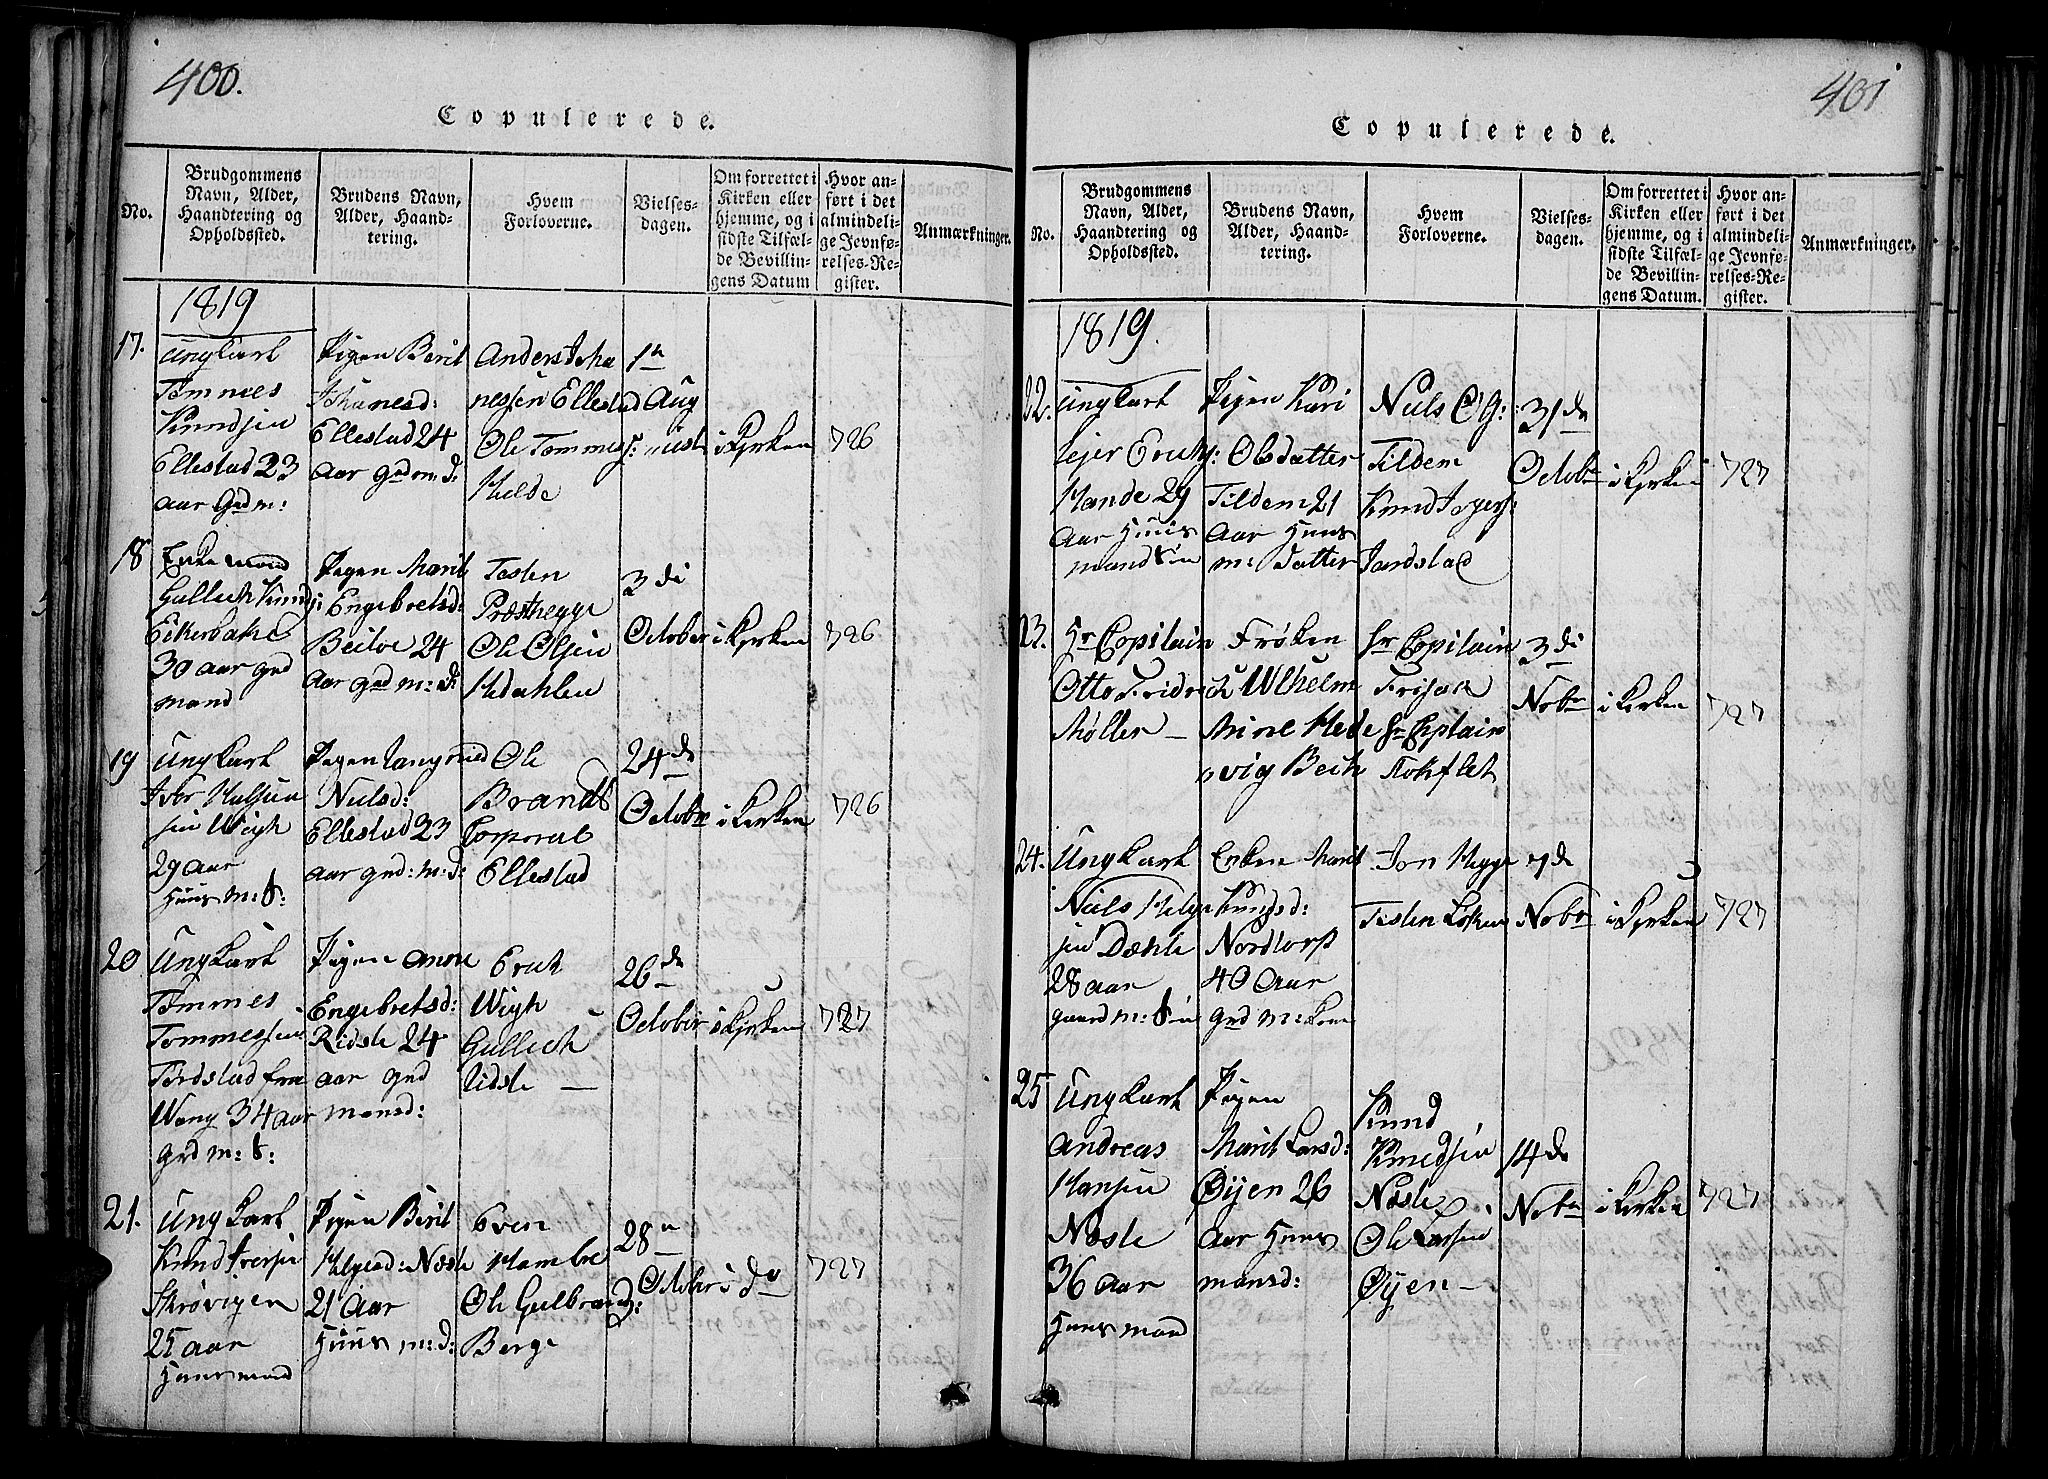 400.
Copulerede.
No.
Brudgommens
Navn, Alder,
Haandtering og
Opholdssted.
Brudens Navn,
Alder, Haand-
tering.
Hvem
Forloverne.
Vielses-
dagen.
Om forrettet i
Kirken eller
hjemme, og i
sidste Tilfæl-
de Bevillin-
gens Datum
Hvor an-
ført i det
almindeli-
ge Jevnfø-
relses-Re-
gister.
Anmærkninger.
1819
17.
Ungkarl
Tommes
Knudsen
Ellestad 23
aar Grdm:
Pigen Berit
Johanesd:
Ellestad 24
aar grd m: d:
Anders Joha
nessen Ellestad
Ole Tommes:
Helde
1te
August
i Kyrken
726
18
Enkemand
Gullech Knuds:
30 aar grd
mand
Pigen Marit
Engebretsd:
Beitoe 24
aar grd m: d:
Tosten
Præsthegge
Ole Olsen
Hedahlen
3di
October
i Kyrken
726
19
Ungkarl
Wigh
29 aar
Huus m: S:
Pigen
Nielsd:
Ellestad 23
aar grd: m: d:
Ole
Brands
Corporal
Ellestad
24de
Octobr
i Kirken
726
20
Ungkarl
Tommes
Tommessen
Tordstad fra
Wang 34 aar
grd m: S:
Pigen Anne
Engebretsd:
Ridste 24
aar grd
mansd:
Erich
Wigh
Gullech
Ridste —
26de
October
i Kyrken
727
21.
Ungkarl
Knud Iversen
Skrøvigen
25 aar
Huusmand
Pigen Berit
Helgesd: Næste
21 Aar
Huus m: d:
Even
Hambre
Ole Gulbrands:
Berge
28n
October
i Do
727
401
Copulerede.
No.
Brudgommens
Navn, Alder,
Haandtering og
Opholdssted.
Brudens Navn,
Alder, Haand-
tering.
Hvem
Forloverne.
Vielses-
dagen.
Om forrettet i
Kirken eller
hjemme, og i
sidste Tilfæl-
de Bevillin-
gens Datum.
Hvor an-
ført i det
almindeli-
ge Jevnfø-
relses-Re-
gister.
Anmærkninger.
1819.
22.
Ungkarl
Erichs:
Hande 29
Aar Huus
mand Søn
Pigen Kari
Olsdatter
Tildem 21
Aar Huus
m: Datter
Niels
Tildem
Knud
Jardstad
31de
Octobr
i Kyrken
727
23.
Hr Capitain
Otto Fridrich
Møller —
Frøken
Wilhelm
Mine Hede
vig Bech
Hr Capitain
Frisach
Hr Captain
3di
Nobr
i Kirken
727
24.
Ungkarl
Niels Helge
sen Dæhle
28 aar
gaard m: Søn
Enken Marit
Knudsd:
Nordtorp
40 Aar
grd m: Kone
Jon Hegge
Tosten Loken
7de
Nobr
i Kyrken
727
25
Ungkarl
Andreas
Hansen
Næste
36 Aar
Huusmand
Pigen
Marit Larsd:
Øyen 26
Aar Huus
mansd:
Knud
Knudsen
Næste
Ole Larsen
Øyen —
14de
Nobr
i Kirken
727